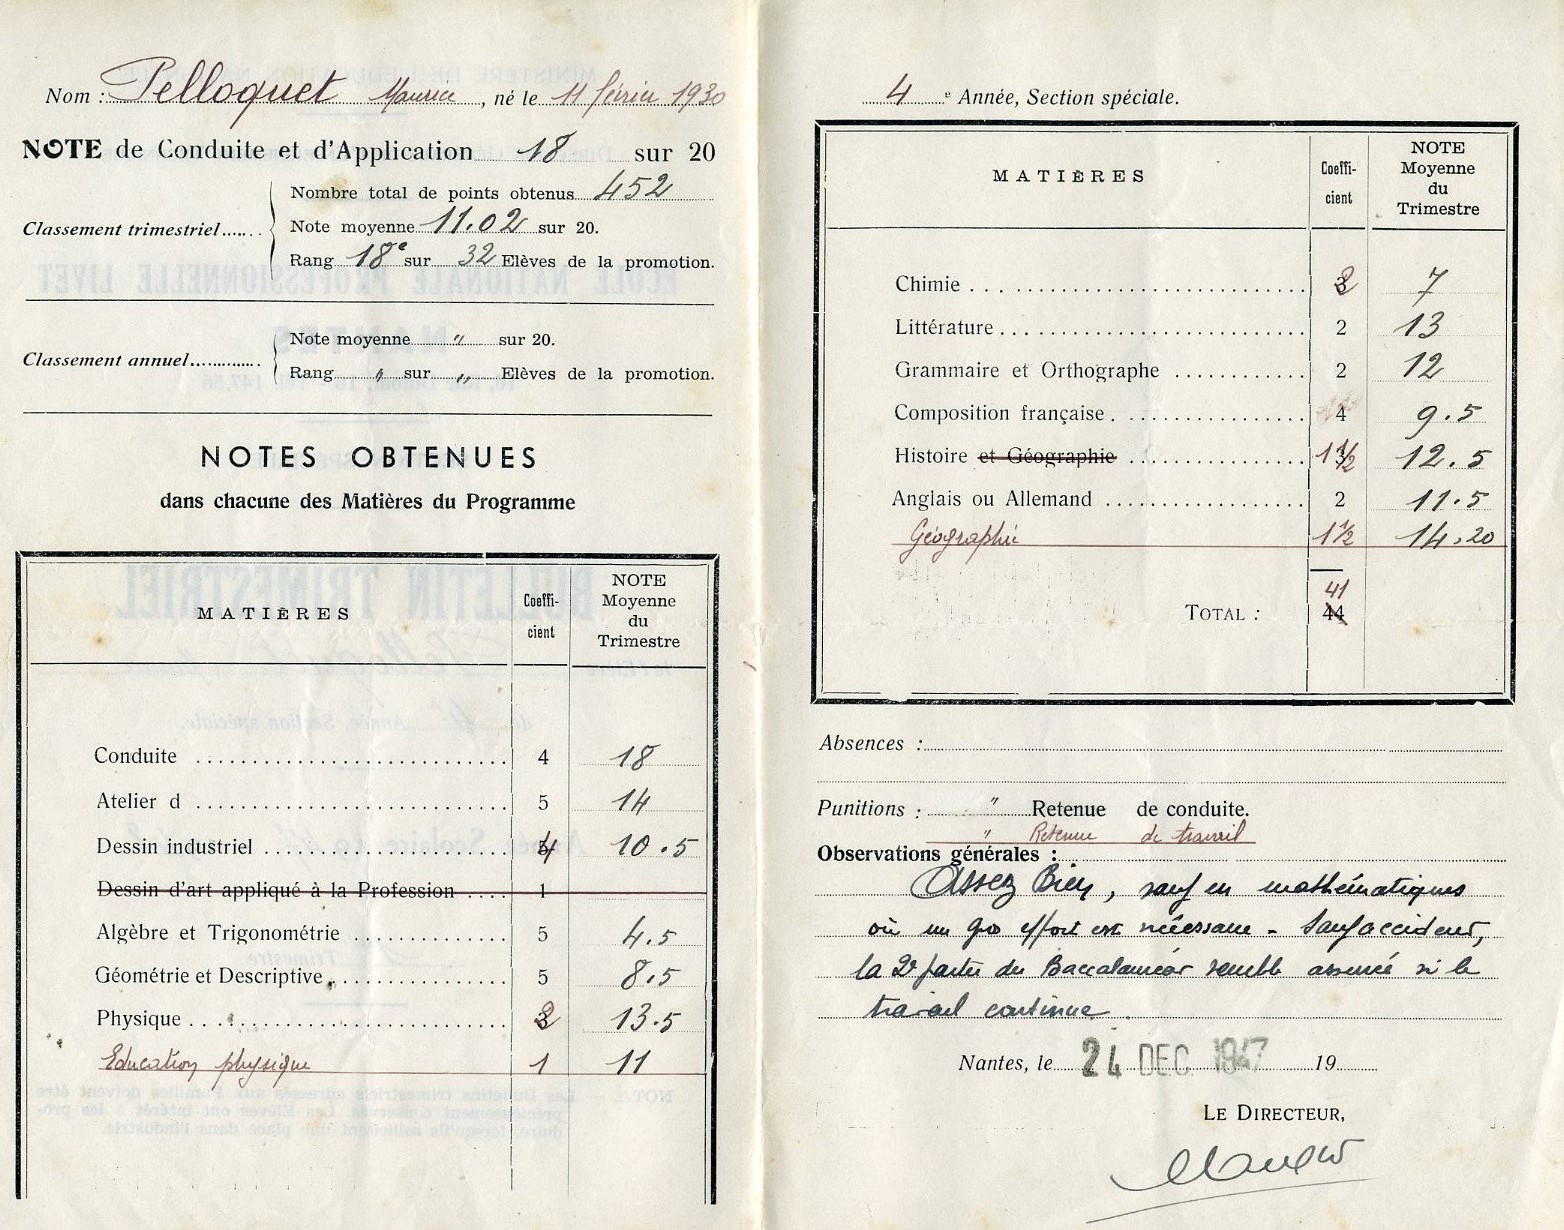 Nom : Pelloquet Maurice, né le 11 février 1930
NOTE de Conduite et d'Application 18 sur 20
Classement trimestriel......
Nombre total de points obtenus 452
Note moyenne 11.02 sur 20.
Rang 18e sur 32 Elèves de la promotion.
Classement annuel.............
Note moyenne " sur 20.
Rang " sur " Elèves de la promotion.
NOTES OBTENUES
dans chacune des Matières du Programme
MATIÈRES Coeffi-cient NOTE Moyenne du Trimestre
Conduite 4 18
Atelier d 5 14
Dessin industriel 4 10.5
Dessin d'art appliqué à la Profession .... 1
Algèbre et Trigonométrie 5 4.5
Géométrie et Descriptive 5 8.5
Physique 2 13.5
Education physique 1 11
4e Année, Section spéciale.
MATIÈRES Coeffi-cient NOTE Moyenne du Trimestre
Chimie 2 7
Littérature 2 13
Grammaire et Orthographe 2 12
Composition française 4 9.5
Histoire et Géographie 1 1/2 12.5
Anglais ou Allemand 2 11.5
Géographie 1 1/2 14.20
41
TOTAL : 44
Absences :
Punitions : " Retenue de conduite.
" Retenue de travail
Observations générales :
Assez Bien, sauf en mathématiques
où un gros effort est nécessaire - Sauf accident,
la 2e partie du Baccalauréat semble assurée si le
travail continue.
Nantes, le 24 DEC. 1947 19
LE DIRECTEUR,